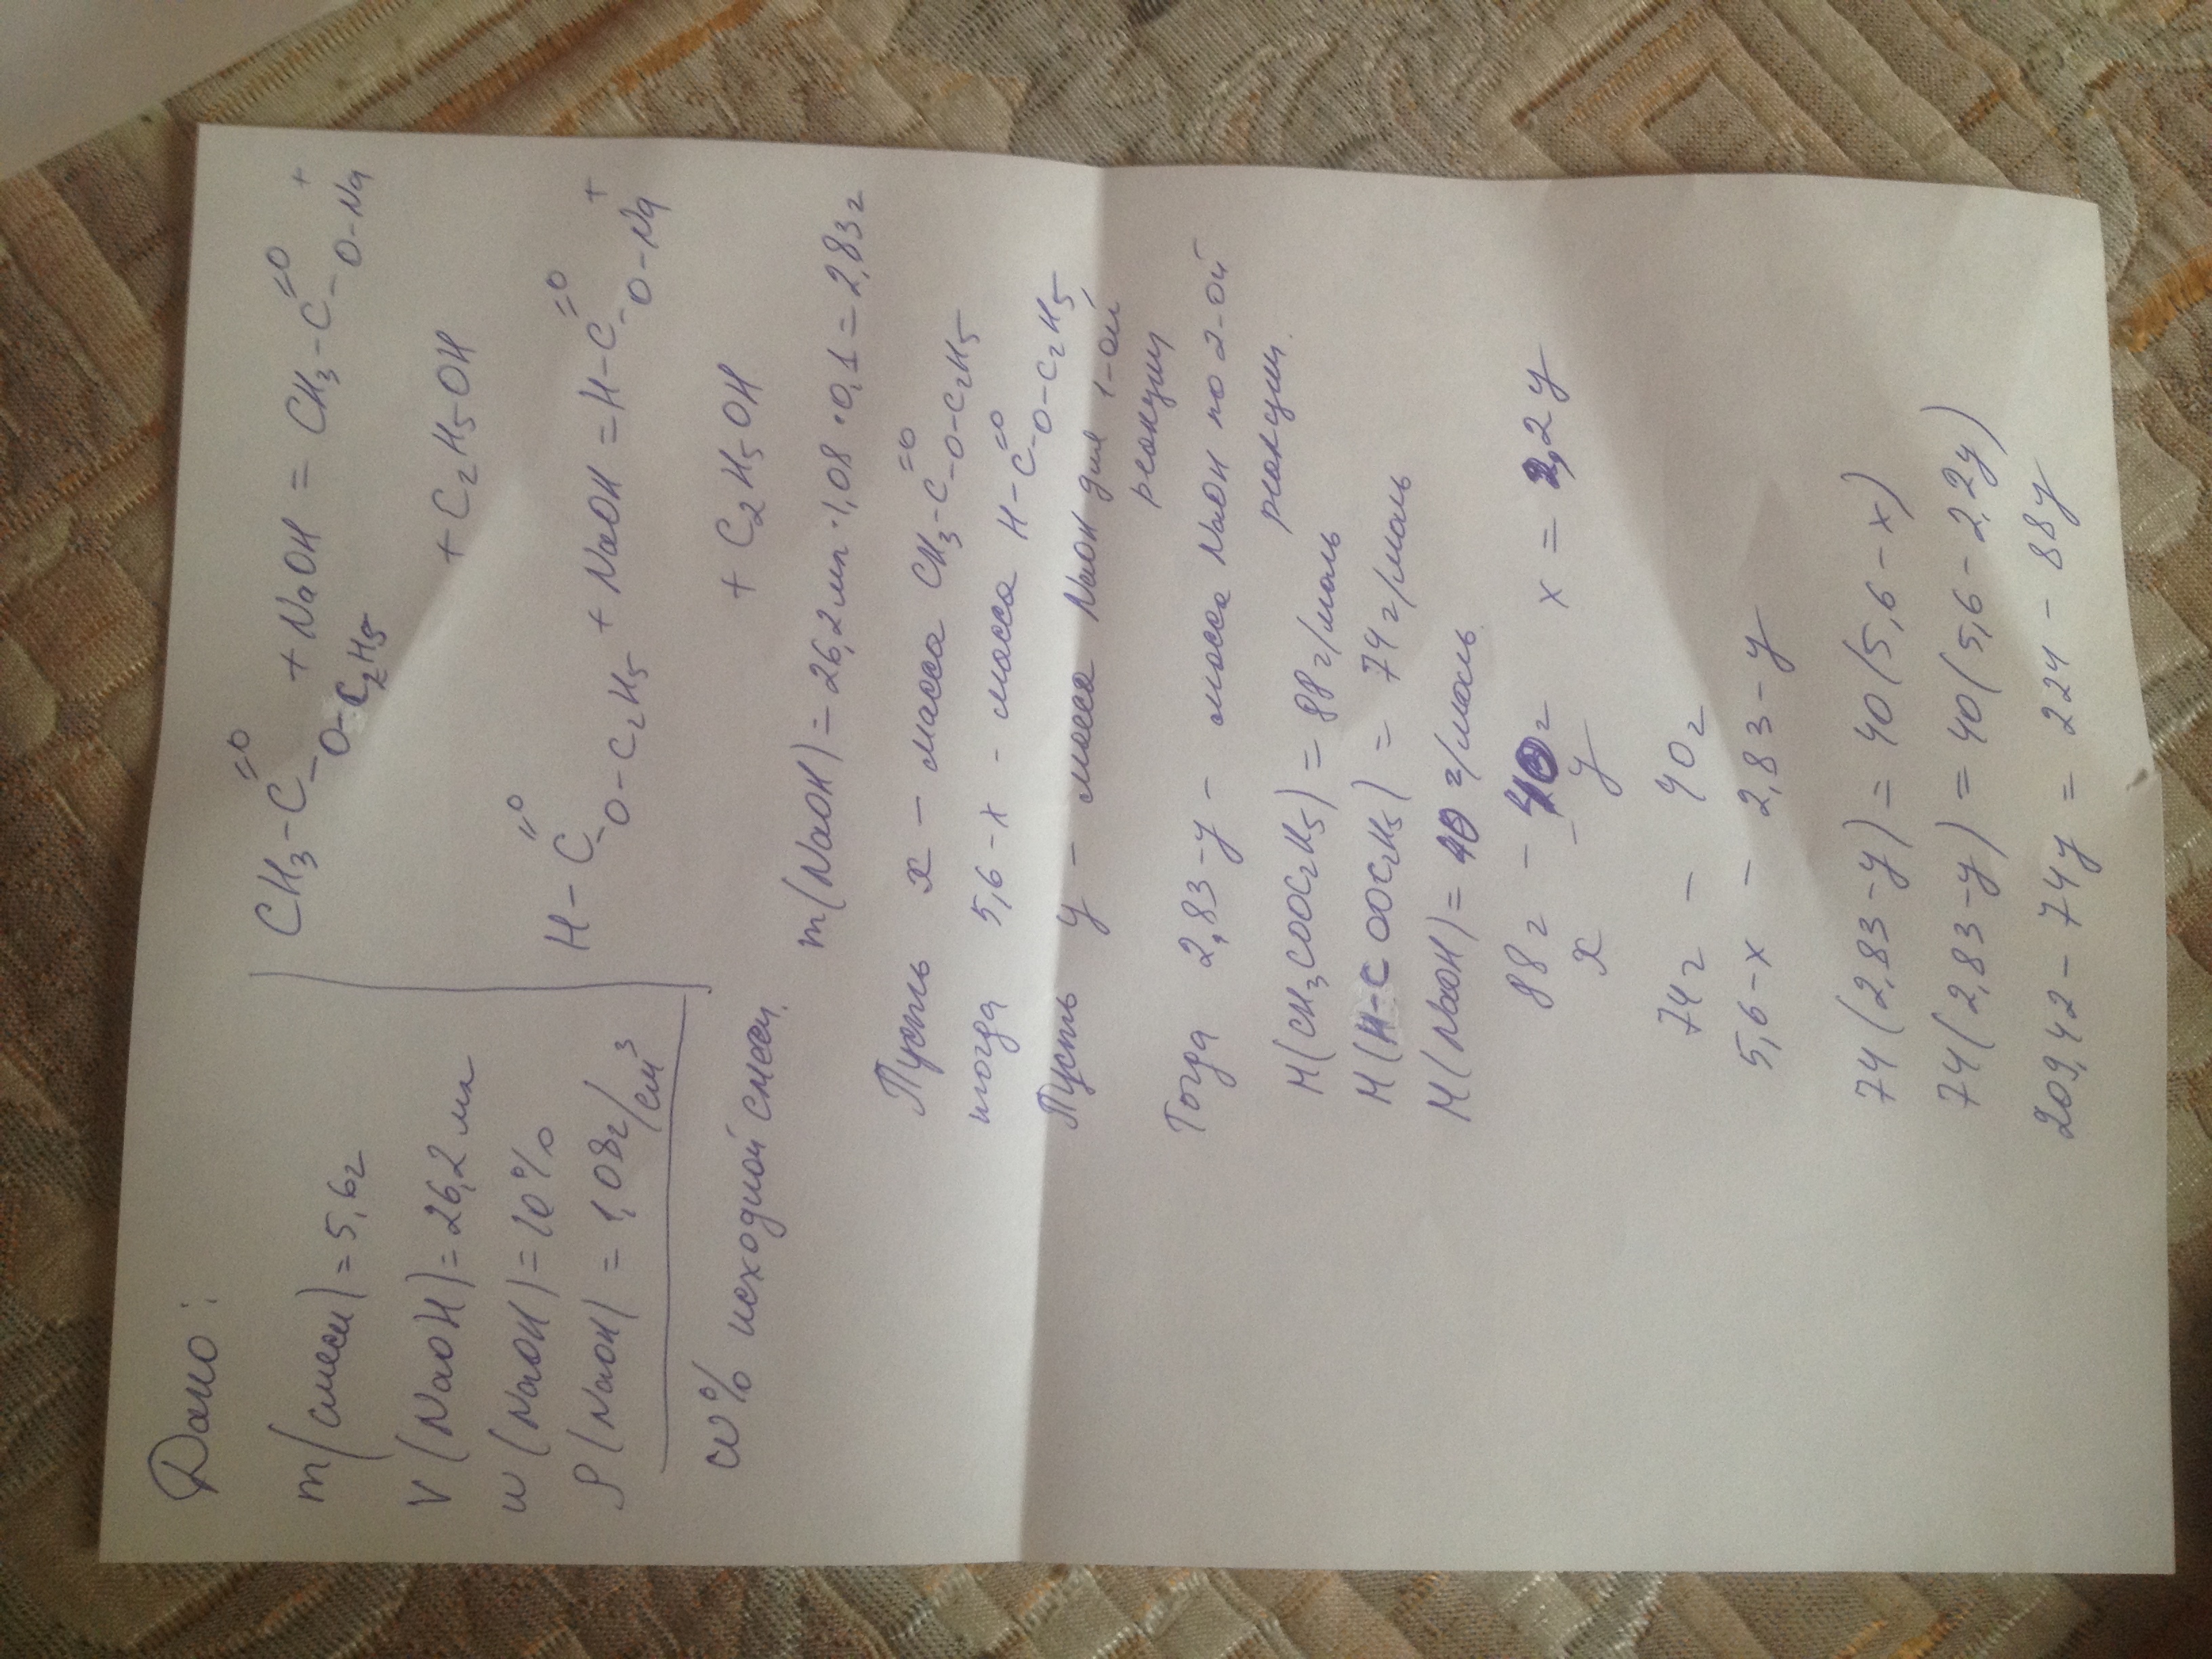 Дано:
m(смеси) = 5,6г
V(NaOH) = 26,2 мл
w(NaOH) = 10%
ρ(NaOH) = 1,08г/см³
w% исходной смеси.
CH₃-C=O
-O-C₂H₅ + NaOH = CH₃-C=O
-O-Na +
+ C₂H₅OH
H-C=O
-O-C₂H₅ + NaOH = H-C=O
-O-Na +
+ C₂H₅OH
m(NaOH) = 26,2мл·1,08·0,1 = 2,83г
Пусть x - масса CH₃-C=O
-O-C₂H₅
тогда 5,6-x - масса H-C=O
-O-C₂H₅
Пусть y - масса NaOH для 1-ой
реакции
Тогда 2,83-y - масса NaOH по 2-ой
реакции.
M(CH₃COOC₂H₅) = 88г/моль
M(H-COOC₂H₅) = 74г/моль
M(NaOH) = 40 г/моль
88г - 40г x = 2,2y
x - y
74г - 40г
5,6-x - 2,83-y
74(2,83-y) = 40(5,6-x)
74(2,83-y) = 40(5,6-2,2y)
209,42-74y = 224-88y